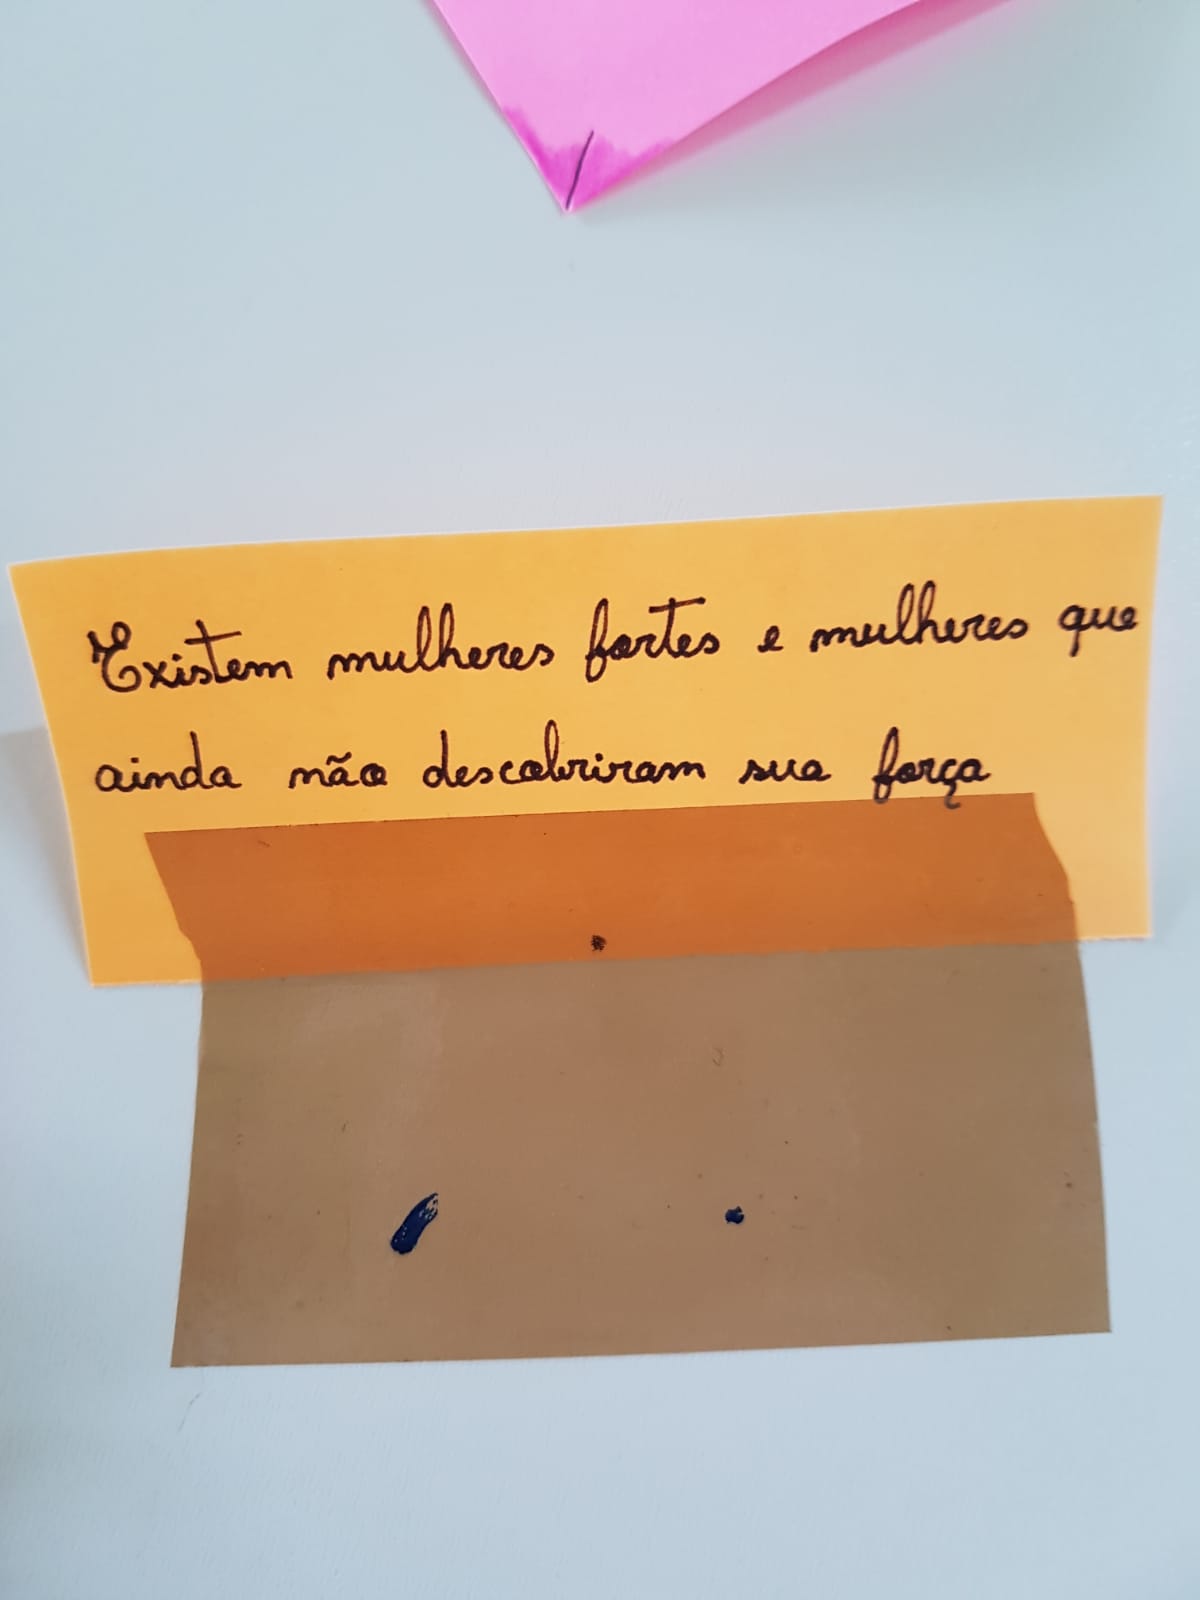 Existem mulheres fortes e mulheres que
ainda não descobriram sua força